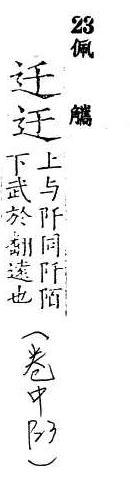 23 佩觿
迁迂
上与阡同阡陌
下武於翻遠也
（卷中 ）